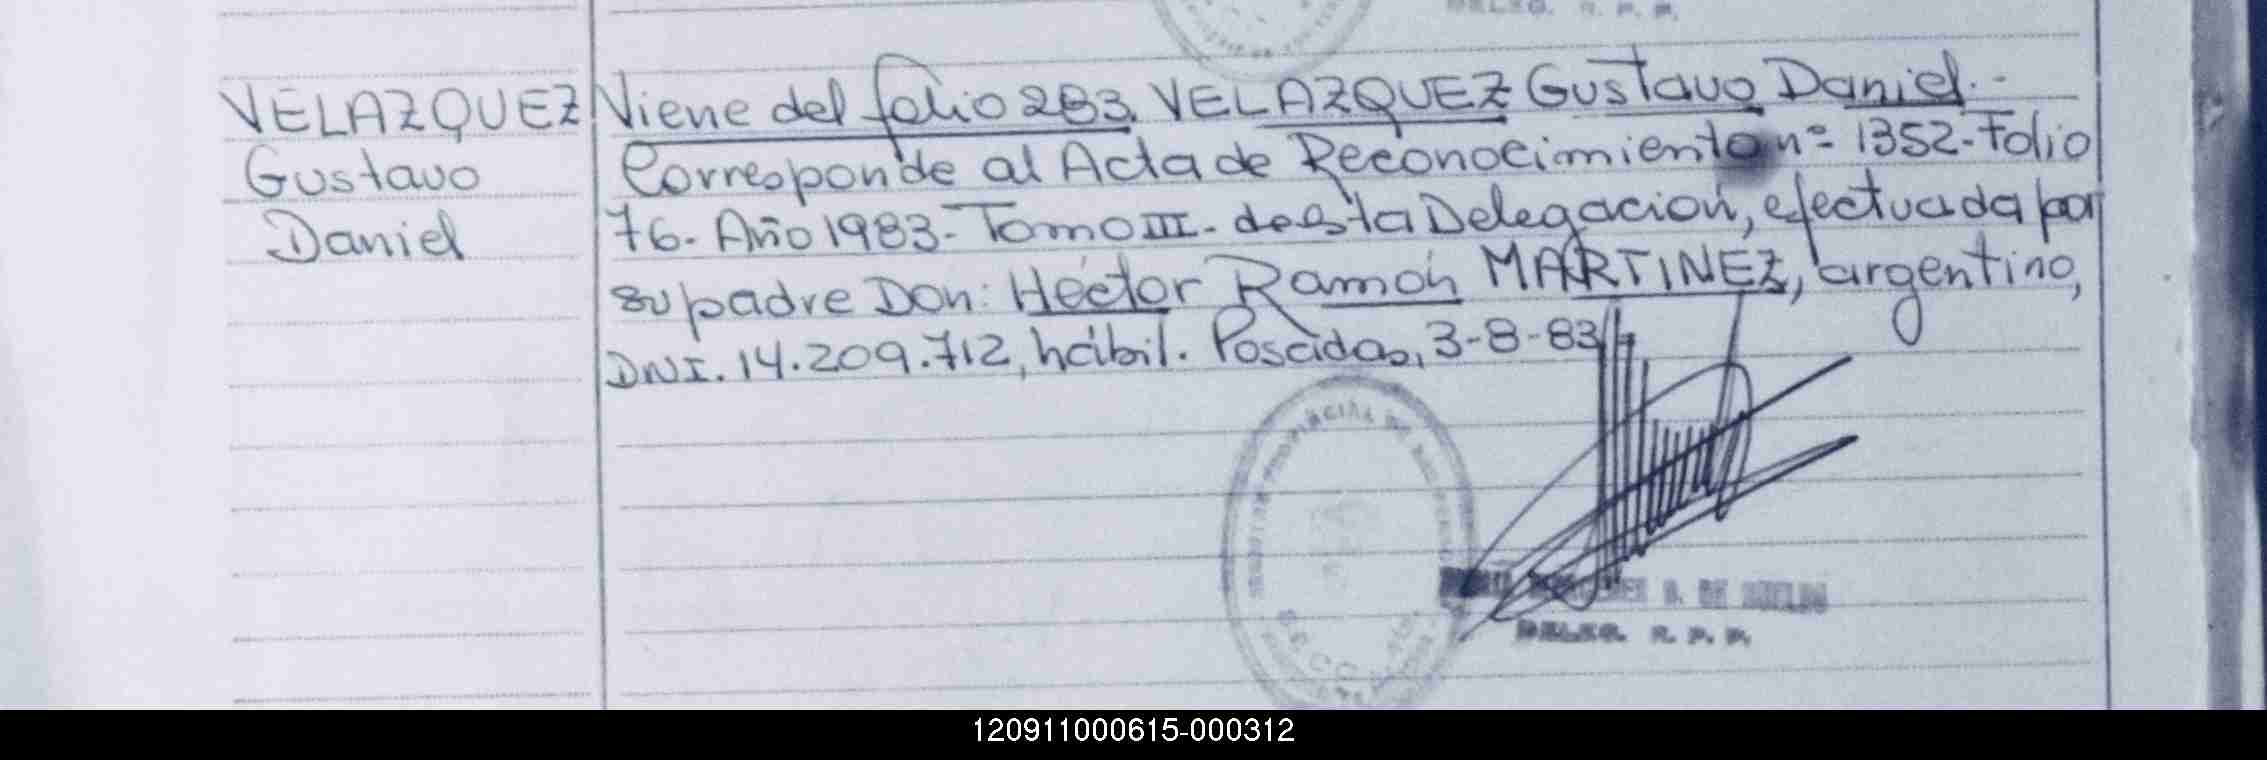 DELEG. R. P. P.
VELAZQUEZ
Gustavo
Daniel
Viene del folio 283. VELAZQUEZ Gustavo Daniel.-
Corresponde al Acta de Reconocimiento nº 1352-Folio
76- Año 1983-Tomo III- de esta Delegación, efectuada por
su padre Don: Héctor Ramón MARTINEZ, argentino,
DNI. 14.209.712, hábil. Posadas, 3-8-83
DELEG. R. P. P.
120911000615-000312